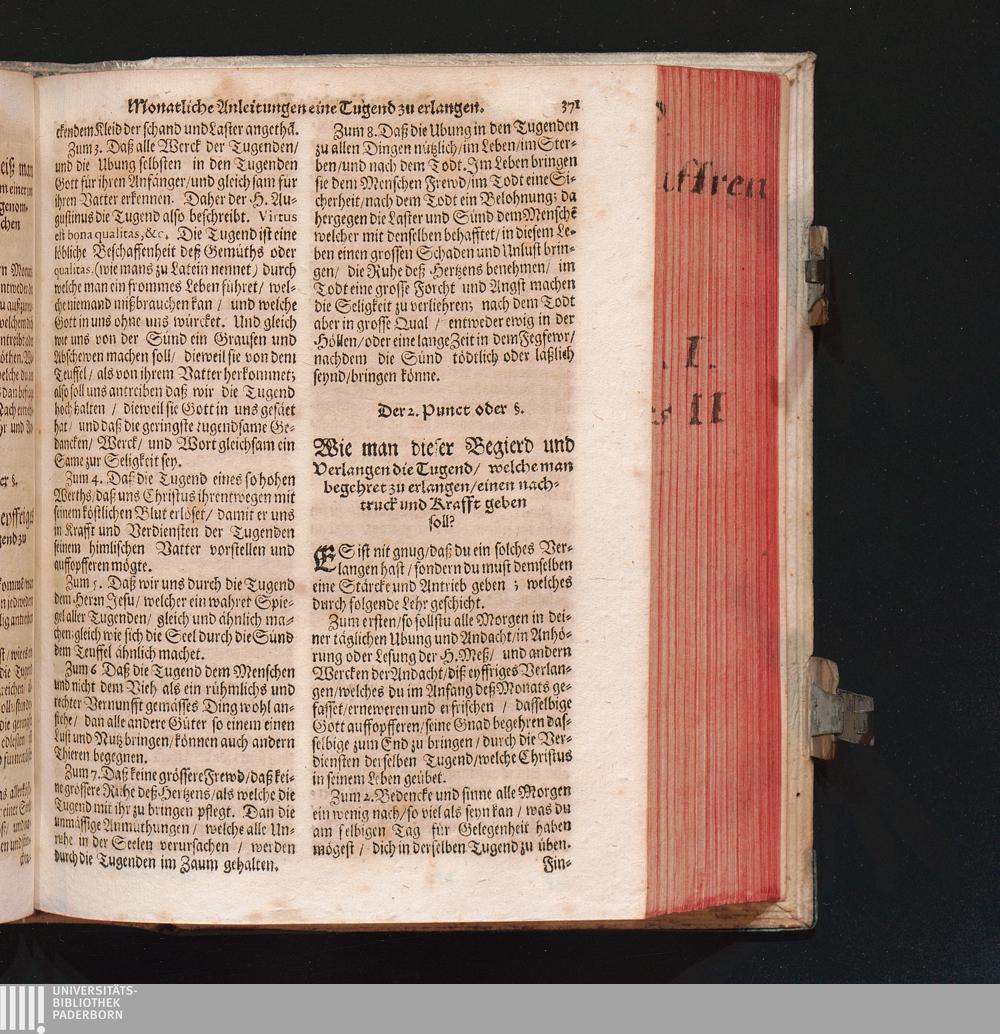 Monatliche Anleitungen eine Tugend zu erlangen. 371
ckendem Kleid der schand und Laster angethã.
Zum 3. Daß alle Werck der Tugenden/
und die Ubung selbsten in den Tugenden
Gott für ihren Anfänger/und gleich sam für
ihren Vatter erkennen. Daher der H. Au-
gustinus die Tugend also beschreibt. Virtus
est bona qualitas, &c. Die Tugend ist eine
löbliche Beschaffenheit deß Gemüths oder
qualitas, (wie mans zu Latein nennet) durch
welche man ein frommes Leben führet/ wel-
che niemand mißbrauchen kan / und welche
Gott in uns ohne uns würcket. Und gleich
wie uns von der Sünd ein Grausen und
Abschewen machen soll/ dieweil sie von dem
Teuffel/ als von ihrem Vatter herkommet;
also soll uns antreiben daß wir die Tugend
hoch halten / dieweil sie Gott in uns gesäet
hat/ und daß die geringste tugendsame Ge-
dancken/ Werck/ und Wort gleichsam ein
Same zur Seligkeit sey.
Zum 4. Daß die Tugend eines so hohen
Werths/daß uns Christus ihrentwegen mit
seinem köstlichen Blut erlöset/ damit er uns
in Krafft und Verdiensten der Tugenden
seinem himlischen Vatter vorstellen und
auffopfferen mögte.
Zum 5. Daß wir uns durch die Tugend
dem Herrn Jesu/ welcher ein wahret Spie-
gel aller Tugenden/ gleich und ähnlich ma-
chen: gleich wie sich die Seel durch die Sünd
dem Teuffel ähnlich machet.
Zum 6 Daß die Tugend dem Menschen
und nicht dem Vieh als ein rühmlichs und
rechter Vernunfft gemässes Ding wohl an-
stehe/ dan alle andere Güter so einem einen
Lust und Nutz bringen/können auch andern
Thieren begegnen.
Zum 7. Daß keine grössere Frewd/daß kei-
ne grössere Ruhe deß Hertzens/als welche die
Tugend mit ihr zu bringen pflegt. Dan die
unmässige Anmuthungen / welche alle Un-
ruhe in der Seelen verursachen / werden
durch die Tugenden im Zaum gehalten.
Zum 8. Daß die Ubung in den Tugenden
zu allen Dingen nützlich/im Leben/im Ster-
ben/und nach dem Todt. Im Leben bringen
sie dem Menschen Frewd/im Todt eine Si-
cherheit/nach dem Todt ein Belohnung; da
hergegen die Laster und Sünd dem Menschẽ
welcher mit denselben behafftet/in diesem Le-
ben einen grossen Schaden und Unlust brin-
gen/ die Ruhe deß Hertzens benehmen/ im
Todt eine grosse Forcht und Angst machen
die Seligkeit zu verliehren; nach dem Todt
aber in grosse Qual / entweder ewig in der
Höllen/oder eine lange Zeit in dem Fegfewr/
nachdem die Sünd tödtlich oder läßlich
seynd/bringen könne.
Der 2. Punct oder §.
Wie man dieser Begierd und
Verlangen die Tugend/ welche man
begehret zu erlangen/einen nach-
truck und Krafft geben
soll?
ES ist nit gnug/daß du ein solches Ver-
langen hast / sondern du must demselben
eine Stärcke und Antrieb geben ; welches
durch folgende Lehr geschicht.
Zum ersten/so sollstu alle Morgen in dei-
ner täglichen Ubung und Andacht/in Anhö-
rung oder Lesung der H. Meß/ und andern
Wercken der Andacht/diß eyffriges Verlan-
gen/welches du im Anfang deß Monats ge-
fasset/erneweren und erfrischen / dasselbige
Gott auffopfferen/seine Gnad begehren das-
selbige zum End zu bringen/durch die Ver-
diensten derselben Tugend/welche Christus
in seinem Leben geübet.
Zum 2. Bedencke und sinne alle Morgen
ein wenig nach/so viel als seyn kan / was du
am selbigen Tag für Gelegenheit haben
mögest / dich in derselben Tugend zu üben.
Fin-
UNIVERSITÄTS-
BIBLIOTHEK
PADERBORN